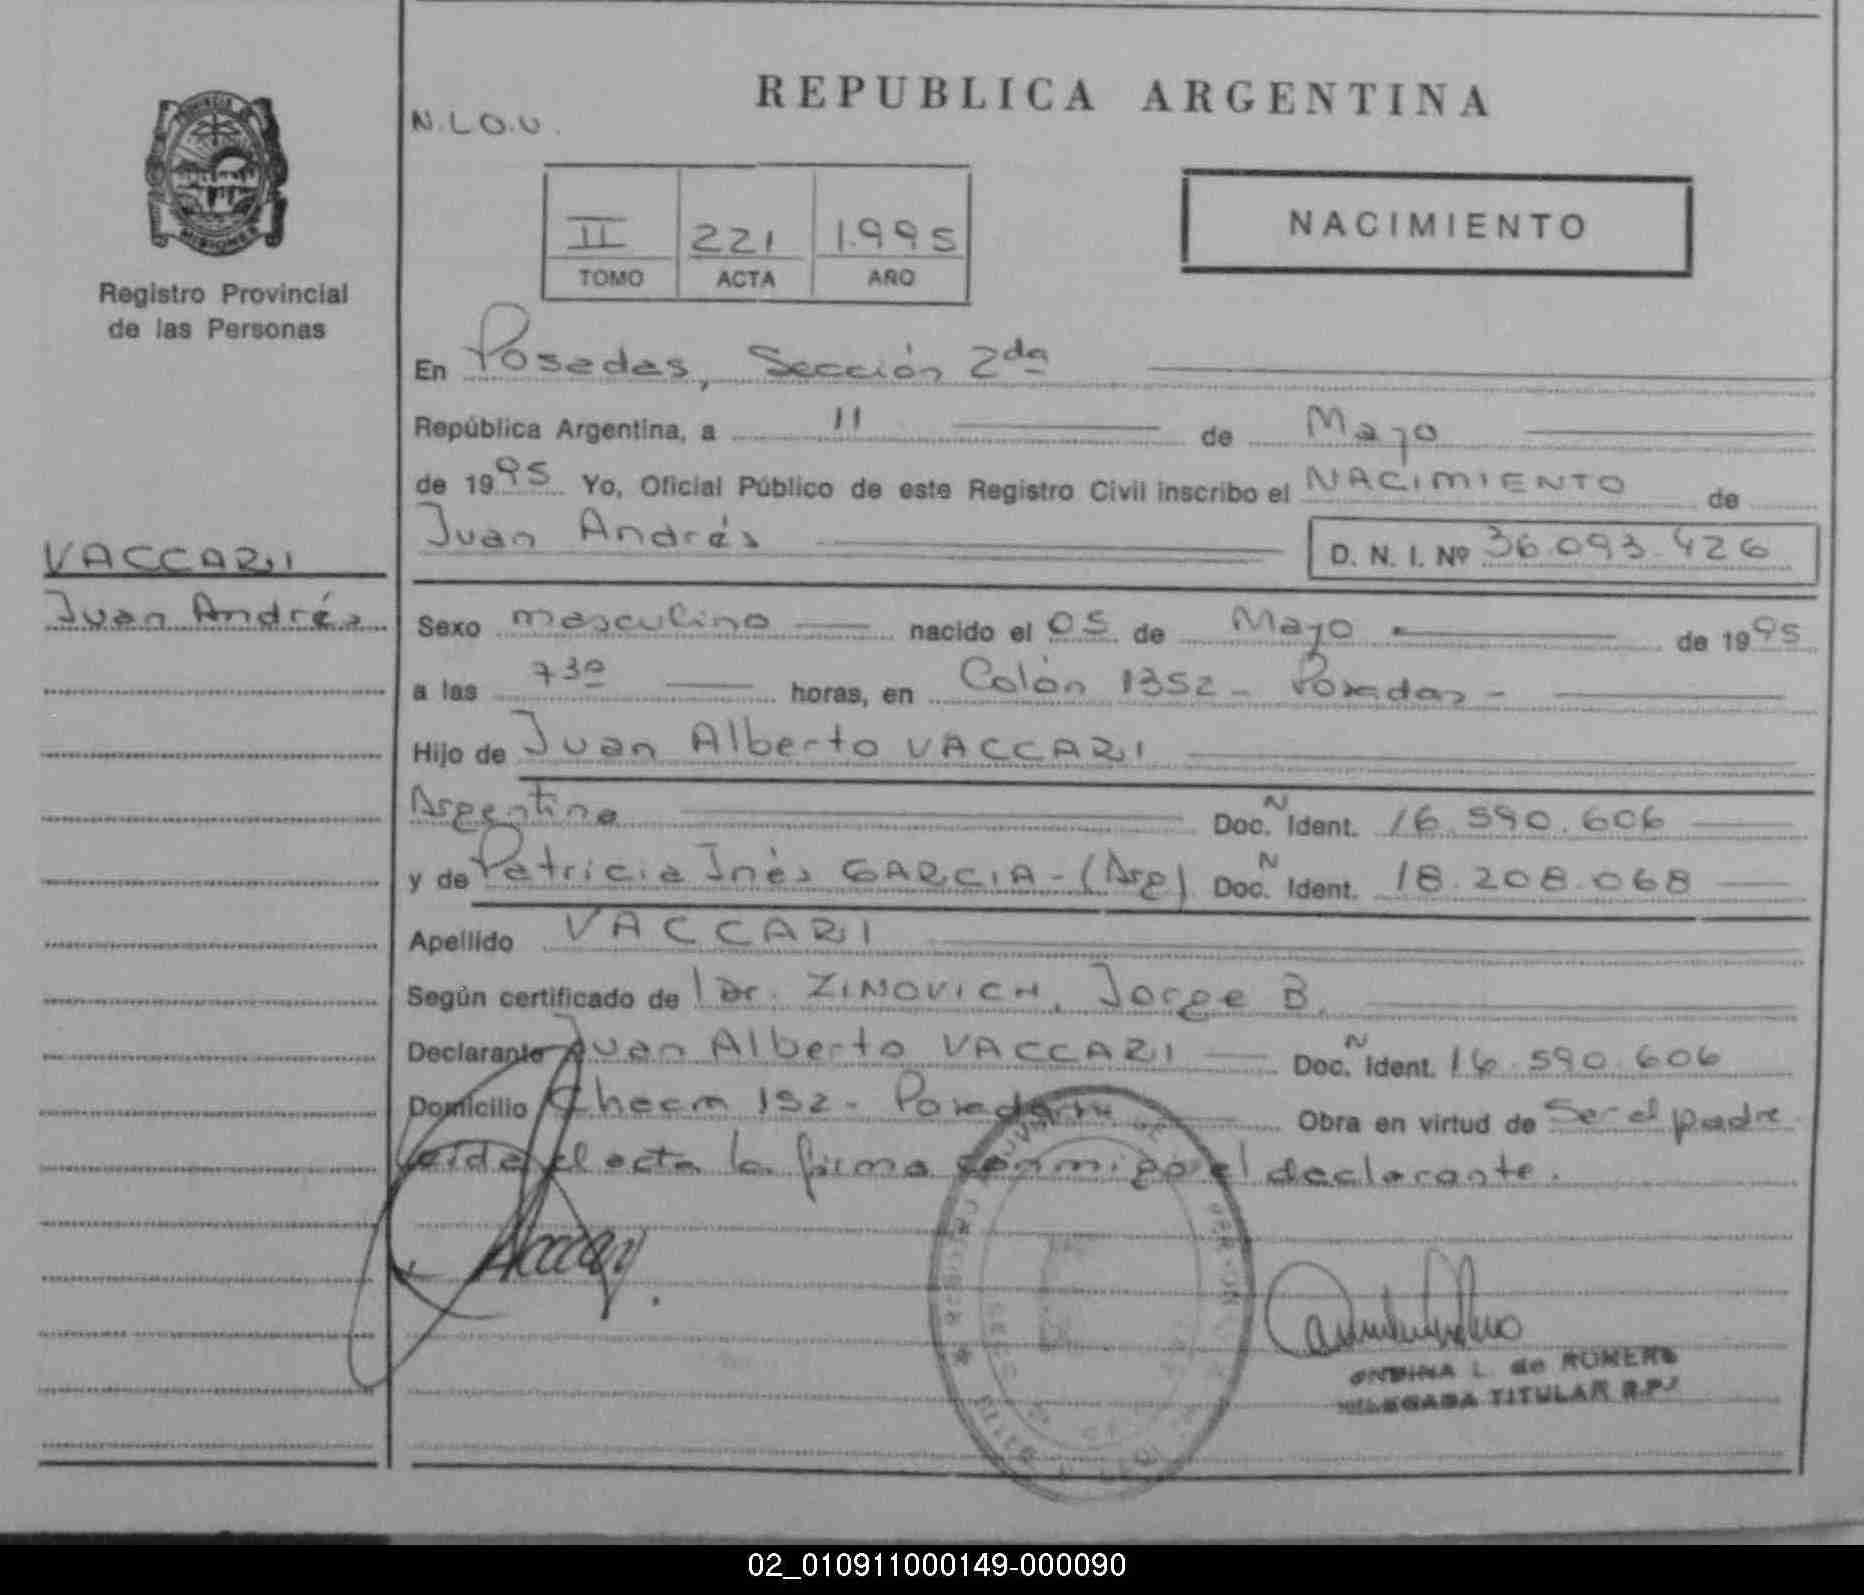 REPUBLICA ARGENTINA
N.L.O.U.
NACIMIENTO
II 221 1.995
TOMO ACTA AÑO
MISIONES
Registro Provincial
de las Personas
En Posadas, Sección 2da
República Argentina, a 11 de Mayo
de 1995 Yo, Oficial Público de este Registro Civil inscribo el NACIMIENTO de
Juan Andrés D. N. I. Nº 36.093.426
VACCARI
Juan Andrés
Sexo masculino nacido el 05 de Mayo de 1995
a las 7 30 horas, en Colón 1352 - Posadas -
Hijo de Juan Alberto VACCARI
Argentino Doc. N Ident. 16.590.606
y de Patricia Inés GARCIA - (Arg) Doc. N Ident. 18.208.068
Apellido VACCARI
Según certificado de Dr. ZINOVICH, Jorge B.
Declarante Juan Alberto VACCARI Doc. N Ident. 16.590.606
Domicilio 152 - Posadas Obra en virtud de Ser el padre
Leída el acta la firma conmigo el declarante.
L. de ROMERO
DELEGADA TITULAR R.P.
02_010911000149-000090